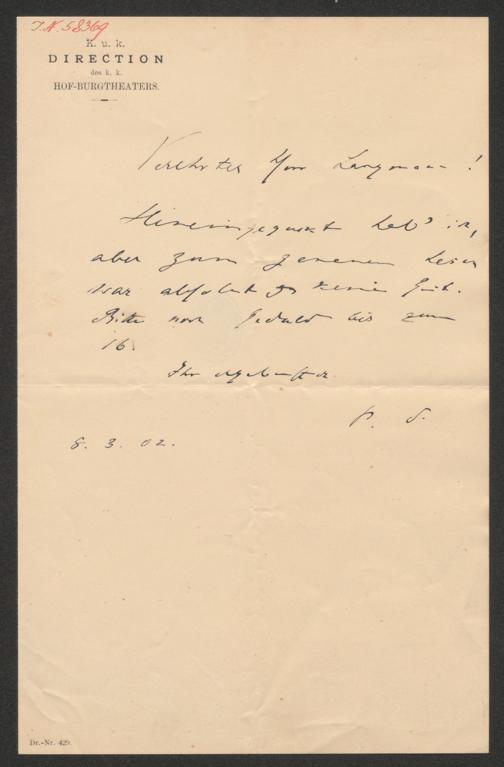 J.N. 58369
K. u. k.
DIRECTION
des k. k.
HOF-BURGTHEATERS.
Verehrter Herr Langmann!
Hineingeguckt hab' ich,
aber zum genauen Lesen
war absolut keine Zeit.
Bitte noch Geduld bis zum
16.
Ihr ergebenster
P. S.
8. 3. 02.
Dr.-Nr. 429.